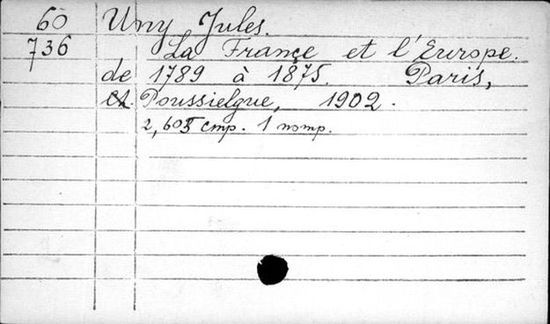 60 Uny Jules.
736 La France et l'Europe.
de 1789 à 1875. Paris,
Poussielgue, 1902.
2, 605 стр. 1 портр.